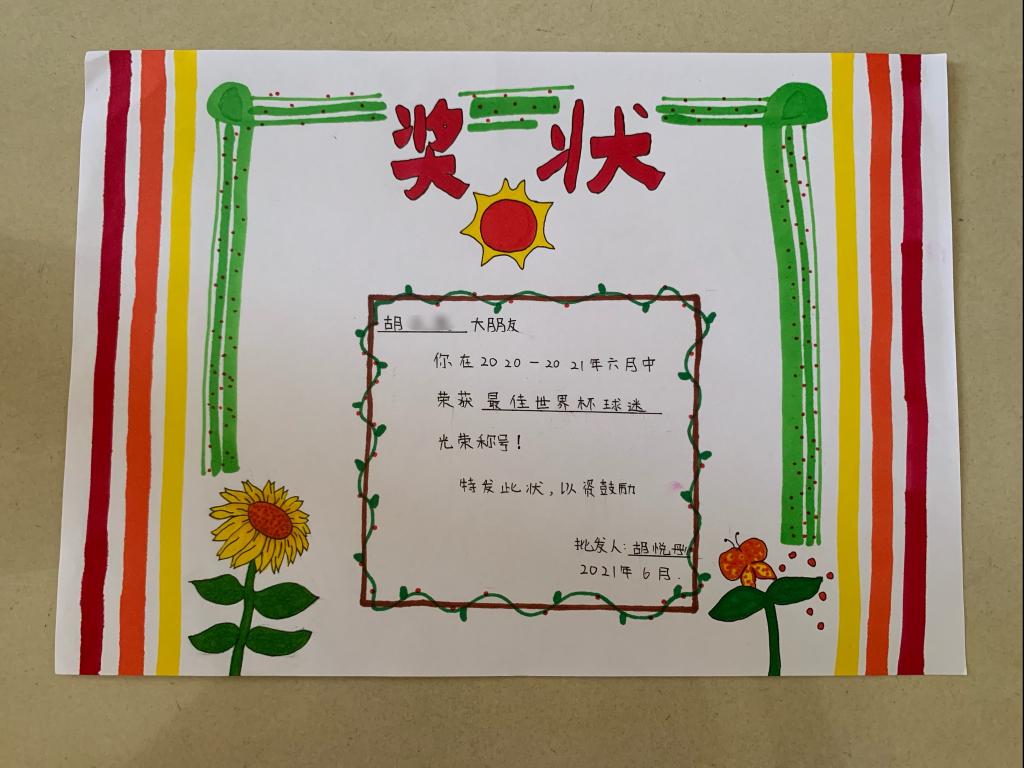 奖状
胡 大朋友
你在2020-2021年六月中
荣获 最佳世界杯球迷
光荣称号!
特发此状,以资鼓励
批发人:胡悦彤
2021年6月.